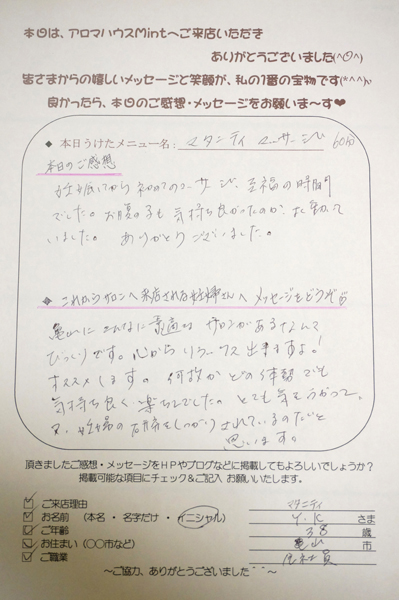 本日は、アロマハウスMintへご来店いただき
ありがとうございました(^O^)
皆さまからの嬉しいメッセージと笑顔が、私の1番の宝物です(*^^*)v
良かったら、本日のご感想・メッセージをお願いま～す♥
◆ 本日うけたメニュー名： マタニティ マッサージ 60分
本日のご感想
妊娠してから初めてのマッサージ、至福の時間
でした。お腹の子も気持ち良かったのか、よく動いて
いました。ありがとうございました。
◆ これからサロンへ来店される妊婦さんへ メッセージをどうぞ
亀山にこんなに素敵なサロンがあるなんて
びっくりです。心からリラックス出来ますよ！
オススメします。何故かどの体勢でも
気持ち良く、楽ちんでした。とても気をつかって、
又、妊婦の研究をしっかりされているのだと
思います。
頂きましたご感想・メッセージをHPやブログなどに掲載してもよろしいでしょうか？
掲載可能な項目にチェック＆ご記入 お願いいたします。
☑ ご来店理由 マタニティ
☑ お名前 （本名・名字だけ・イニシャル） Y.K さま
☑ ご年齢 38 歳
☑ お住まい（〇〇市など） 亀山 市
☑ ご職業 会社員
～ご協力、ありがとうございました～